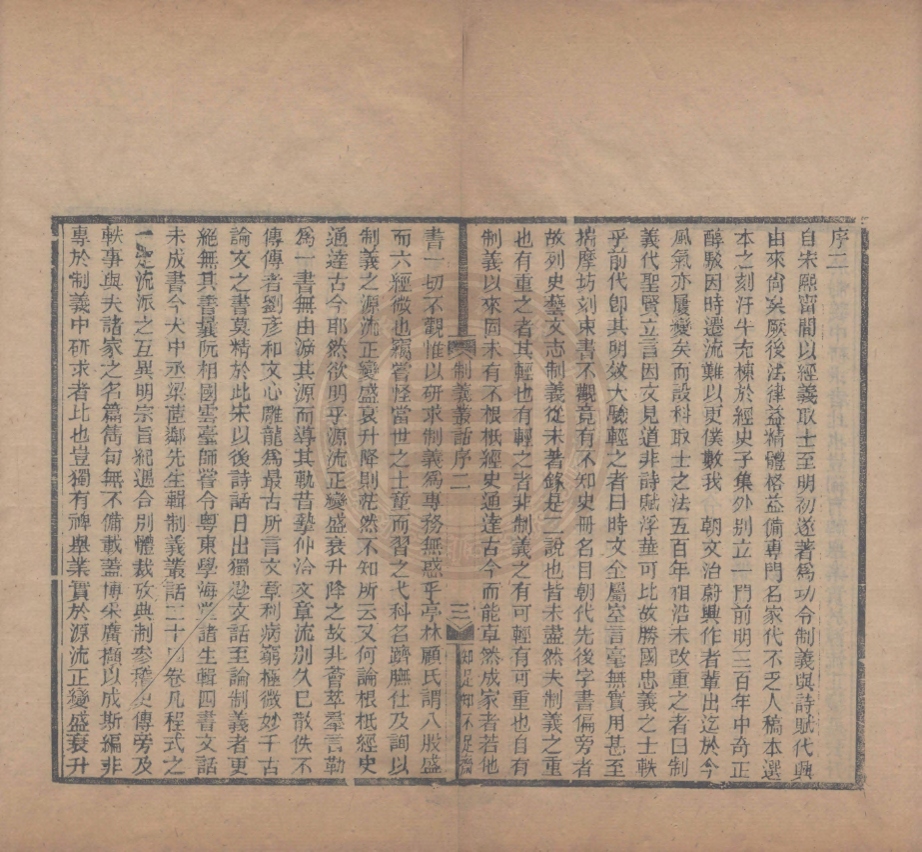 序二
自宋熙甯間以經義取士至明初遂著爲功令制義與詩賦代興
由來尙矣厥後法律益精體格益備專門名家代不乏人稿本選
本之刻汗牛充棟於經史子集外别立一門前明三百年中奇正
醇駁因時遷流難以更僕數我　朝文治蔚興作者輩出迄於今
風氣亦屢變矣而設科取士之法五百年相沿未改重之者曰制
義代聖賢立言因文見道非詩賦浮華可比故勝國忠義之士軼
乎前代卽其明效大驗輕之者曰時文全屬空言毫無實用甚至
揣摩坊刻束書不觀竟有不知史冊名目朝代先後字書偏旁者
故列史藝文志制義從未著錄是二說也皆未盡然夫制義之重
也有重之者其輕也有輕之者非制義之有可輕有可重也自有
制義以來固未有不根柢經史通達古今而能卓然成家者若他
制義叢話序二
三
知足知不足齋
書一切不觀惟以研求制義爲專務無惑乎亭林顧氏謂八股盛
而六經微也竊嘗怪當世之士童而習之弋科名躋膴仕及詢以
制義之源流正變盛衰升降則茫然不知所云又何論根柢經史
通達古今耶然欲明乎源流正變盛衰升降之故非薈萃羣言勒
爲一書無由溯其源而導其勒昔摯仲洽文章流别久已散佚不
傳傳者劉彥和文心雕龍爲最古所言文章利病窮極微妙千古
論文之書莫精於此宋以後詩話日出獨尟文話至論制義者更
絕無其書曩阮相國雲臺師嘗令粤東學海堂諸生輯四書文話
未成書今大中丞梁茝鄰先生輯制義叢話二十四卷凡程式之
一定流派之互異明宗旨紀遇合别體裁攷典制參稽史傳旁及
軼事與夫諸家之名篇雋句無不備載蓋博采廣擷以成斯編非
專於制義中研求者比也豈獨有裨舉業實於源流正變盛衰升